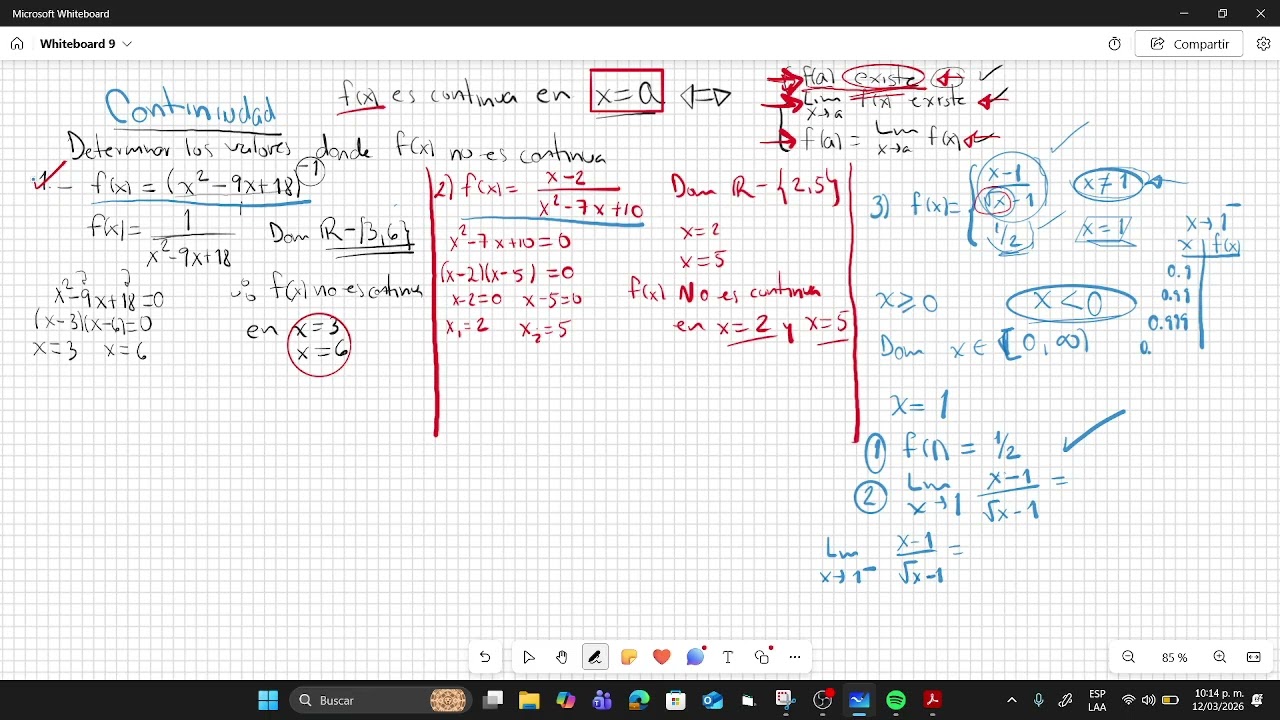 Microsoft Whiteboard
Whiteboard 9
Compartir
Continuidad
f(x) es continua en x=a ⟺
f(a) existe ← ✓
Lim x→a f(x) existe
f(a) = Lim x→a f(x)
Determinar los valores donde f(x) no es continua
1.- f(x) = (x²-9x+18)⁻¹
f(x) = 1/(x²-9x+18)
Dom ℝ-{3,6}
x²-9x+18=0
(x-3)(x-6)=0
x=3 x=6
∴ f(x) no es continua
en x=3
x=6
2) f(x) = (x-2)/(x²-7x+10)
x²-7x+10=0
(x-2)(x-5)=0
x-2=0 x-5=0
x₁=2 x₂=5
Dom ℝ-{2,5}
x=2
x=5
f(x) No es continua
en x=2 y x=5
3) f(x)= { (x-1)/(√x-1) x≠1
1/2 x=1
x≥0 x<0
Dom x∈[0,∞)
x→1⁻
x f(x)
0.9
0.99
0.999
0.
x=1
① f(1) = 1/2 ✓
② Lim x→1 (x-1)/(√x-1) =
Lim x→1⁻ (x-1)/(√x-1) =
85 %
Buscar
ESP
LAA
10:14 p. m.
12/03/2026